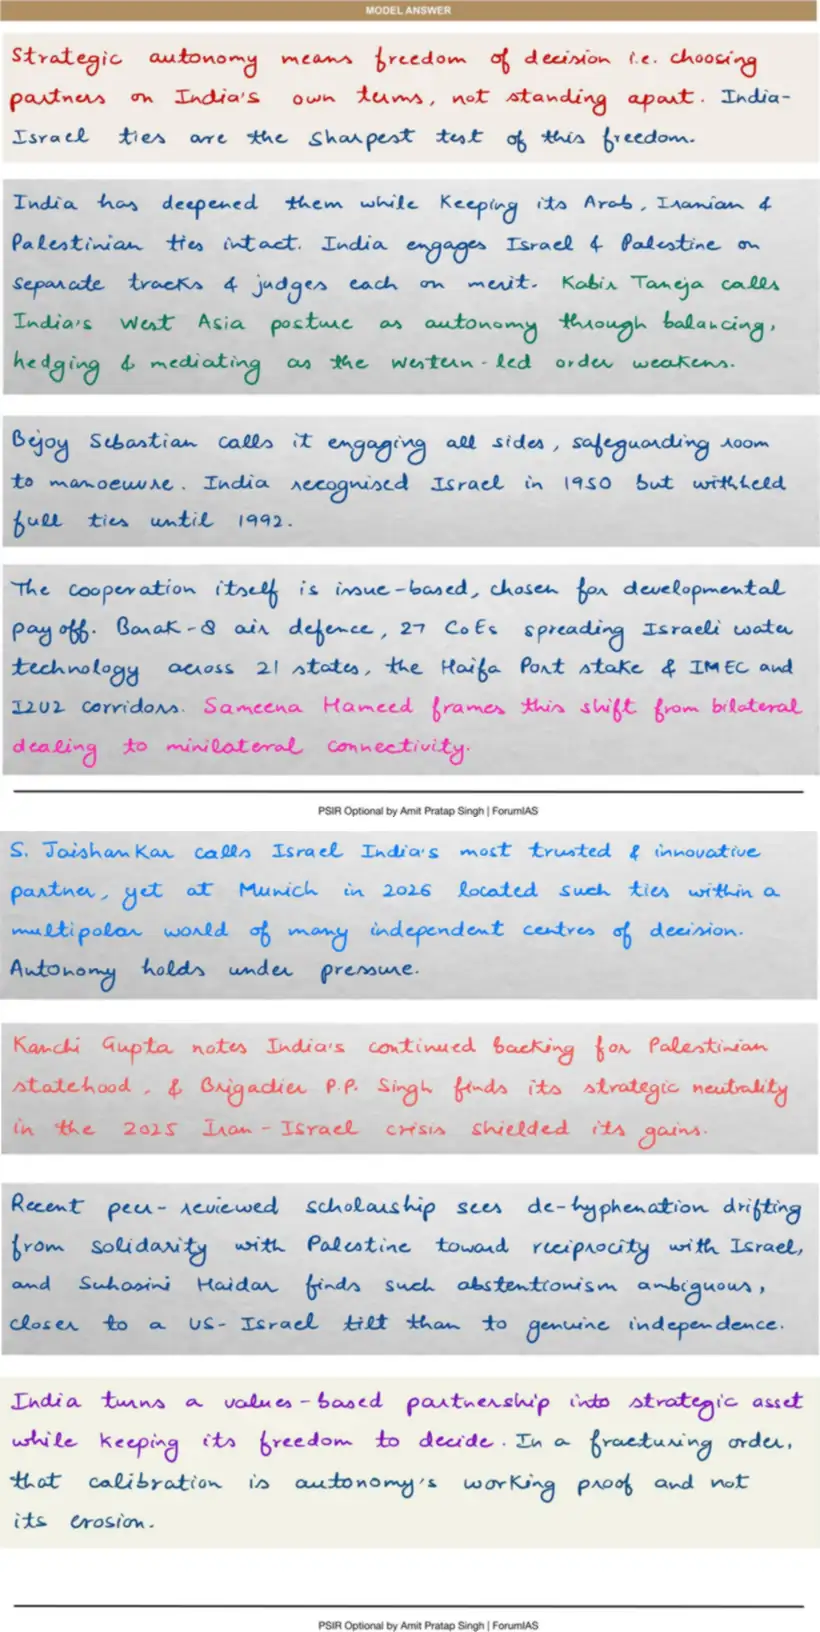 MODEL ANSWER
Strategic autonomy means freedom of decision i.e. choosing
partners on India's own terms, not standing apart. India-
Israel ties are the sharpest test of this freedom.
India has deepened them while keeping its Arab, Iranian &
Palestinian ties intact. India engages Israel & Palestine on
separate tracks & judges each on merit. Kabir Taneja calls
India's West Asia posture as autonomy through balancing,
hedging & mediating as the western-led order weakens.
Bejoy Sebastian calls it engaging all sides, safeguarding room
to manoeuvre. India recognised Israel in 1950 but withheld
full ties until 1992.
The cooperation itself is issue-based, chosen for developmental
pay off. Barak-8 air defence, 27 CoEs spreading Israeli water
technology across 21 states, the Haifa Port stake & IMEC and
I2U2 corridors. Sameena Hameed frames this shift from bilateral
dealing to minilateral connectivity.
PSIR Optional by Amit Pratap Singh | ForumIAS
S. Jaishankar calls Israel India's most trusted & innovative
partner, yet at Munich in 2026 located such ties within a
multipolar world of many independent centres of decision.
Autonomy holds under pressure.
Kanchi Gupta notes India's continued backing for Palestinian
statehood, & Brigadier P.P. Singh finds its strategic neutrality
in the 2025 Iran-Israel crisis shielded its gains.
Recent peer-reviewed scholarship sees de-hyphenation drifting
from solidarity with Palestine toward reciprocity with Israel,
and Suhasini Haidar finds such abstentionism ambiguous,
closer to a US-Israel tilt than to genuine independence.
India turns a values-based partnership into strategic asset
while keeping its freedom to decide. In a fracturing order,
that calibration is autonomy's working proof and not
its erosion.
PSIR Optional by Amit Pratap Singh | ForumIAS